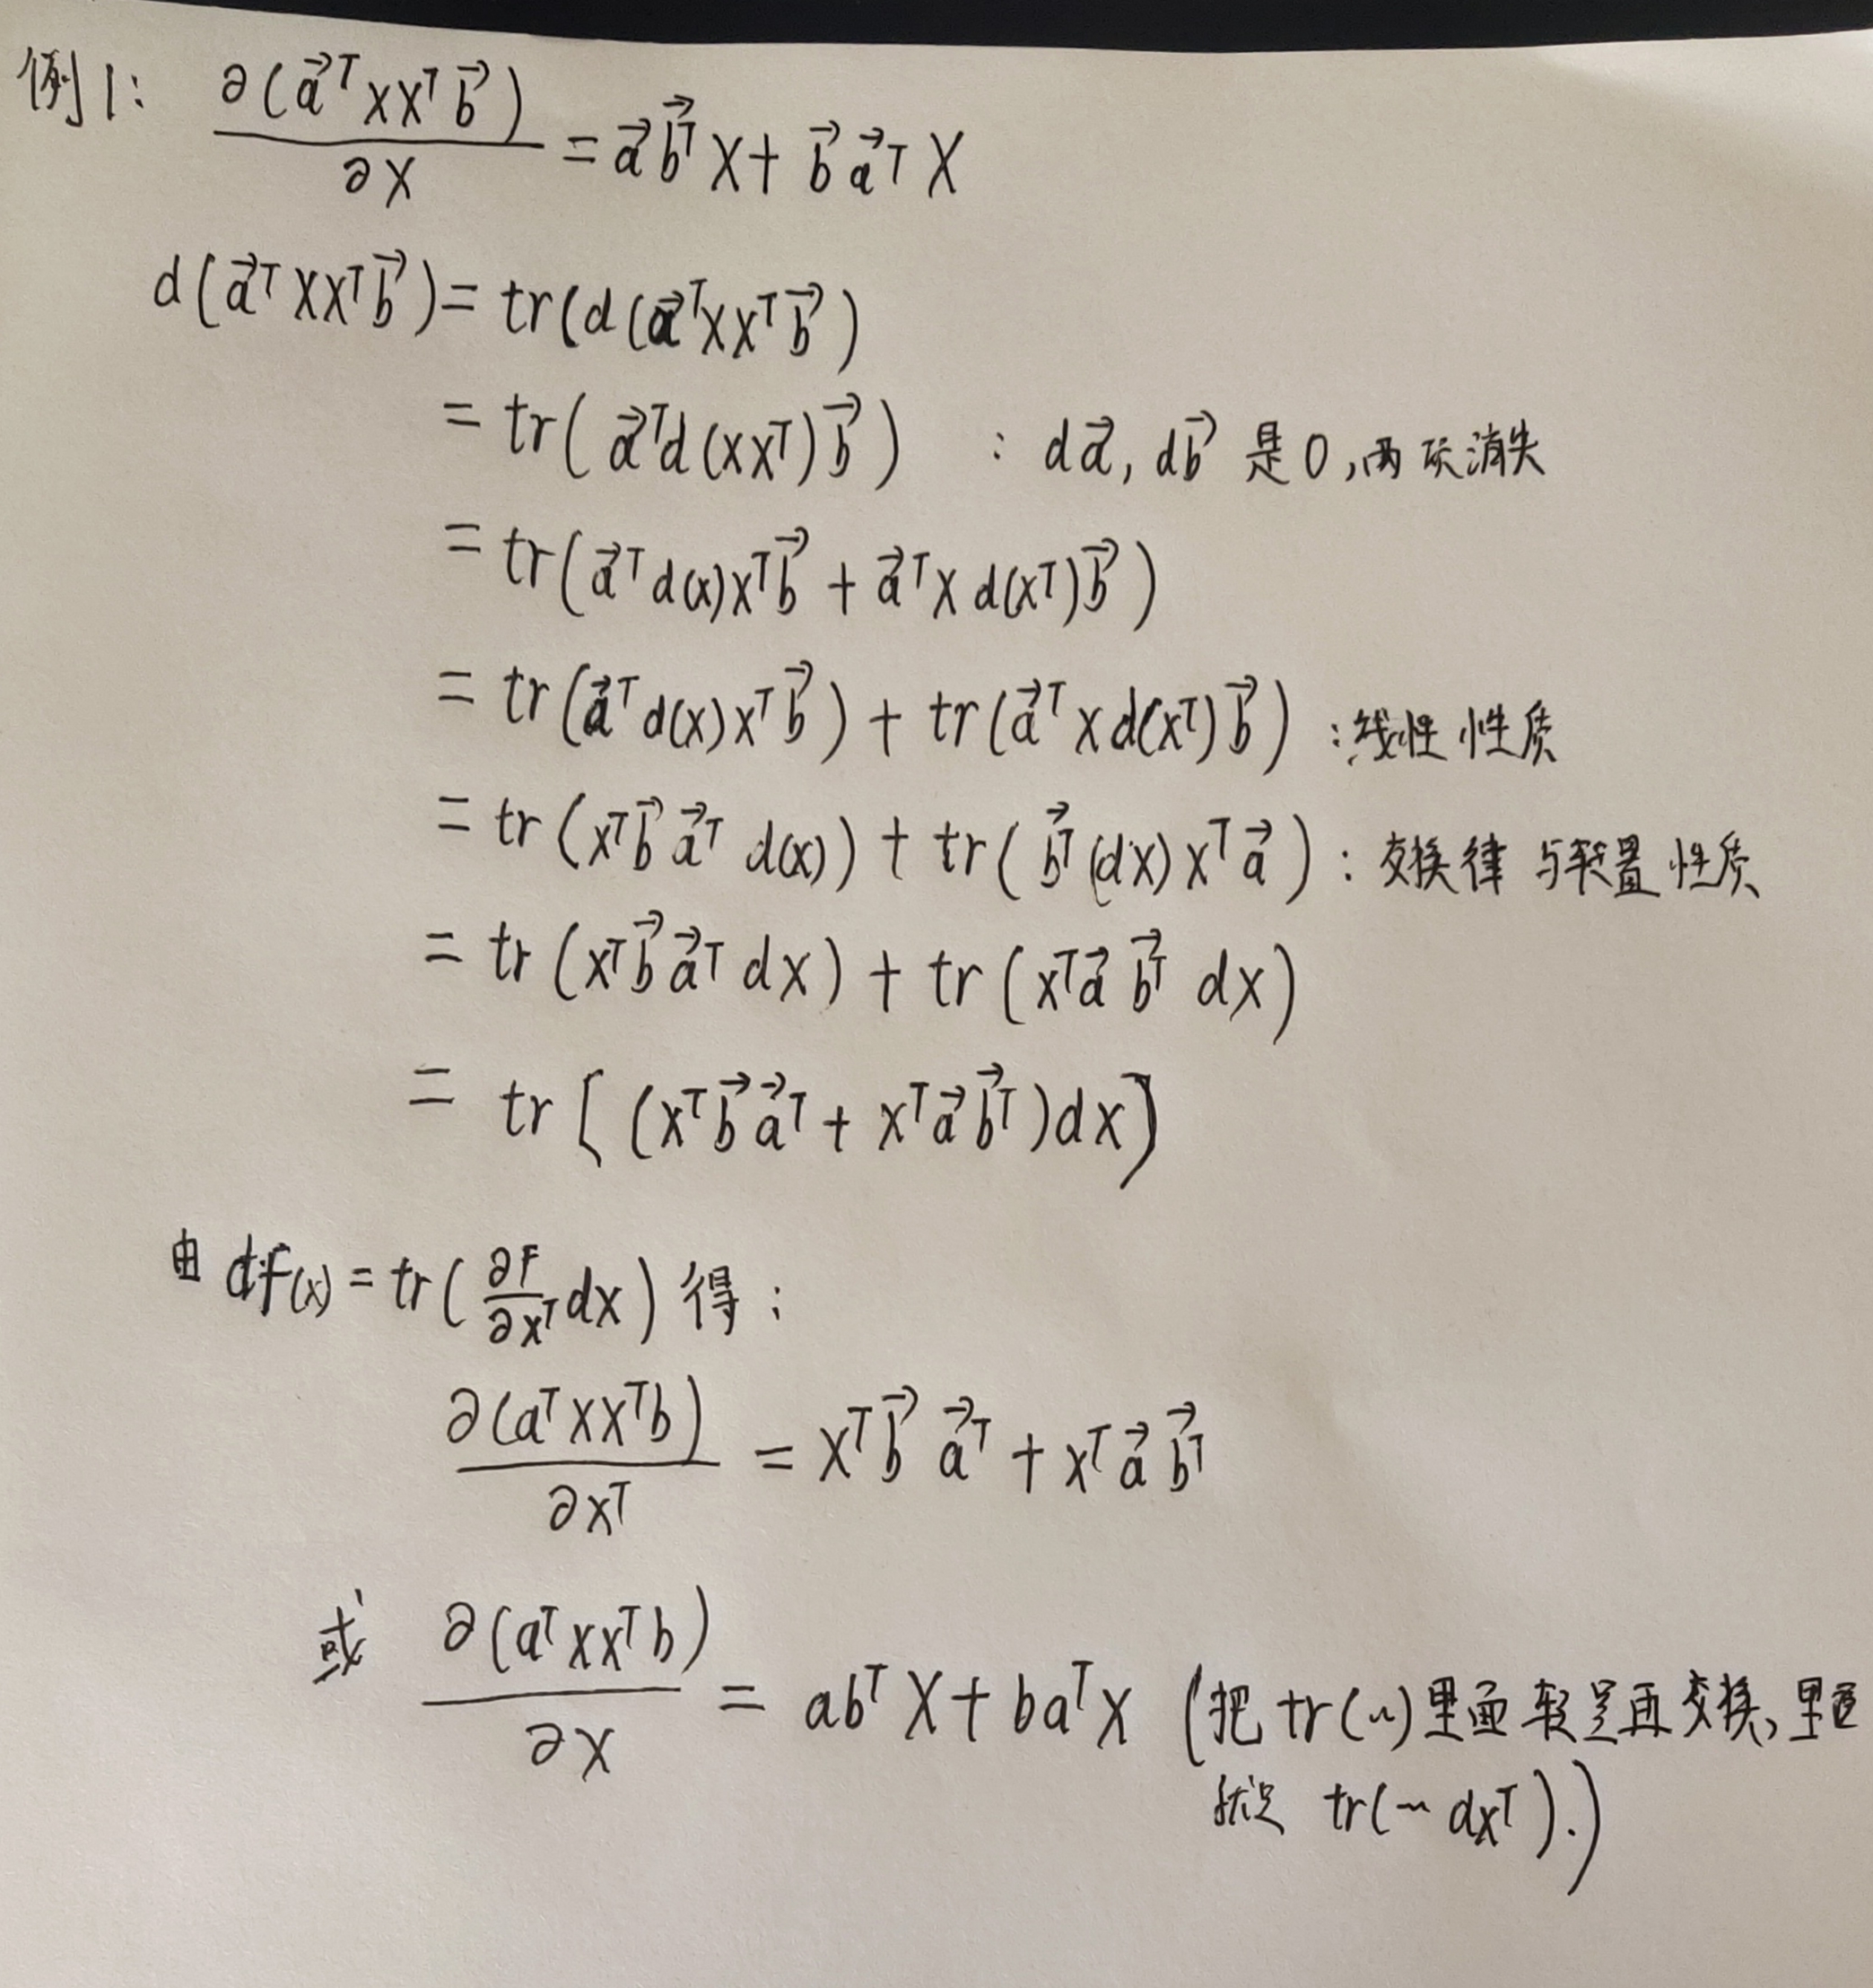 例1: ∂(a⃗ᵀXXᵀb⃗)/∂X = a⃗b⃗ᵀX + b⃗a⃗ᵀX
d(a⃗ᵀXXᵀb⃗) = tr(d(a⃗ᵀXXᵀb⃗)
= tr(a⃗ᵀd(XXᵀ)b⃗) : da⃗, db⃗ 是0,两项消失
= tr(a⃗ᵀd(X)Xᵀb⃗ + a⃗ᵀXd(Xᵀ)b⃗)
= tr(a⃗ᵀd(X)Xᵀb⃗) + tr(a⃗ᵀXd(Xᵀ)b⃗) : 线性性质
= tr(Xᵀb⃗a⃗ᵀ d(X)) + tr(b⃗ᵀ(dX)Xᵀa⃗) : 交换律与转置性质
= tr(Xᵀb⃗a⃗ᵀ dX) + tr(Xᵀa⃗b⃗ᵀ dX)
= tr[(Xᵀb⃗a⃗ᵀ + Xᵀa⃗b⃗ᵀ)dX]
由 df(x) = tr(∂F/∂Xᵀ dX) 得:
∂(aᵀXXᵀb)/∂Xᵀ = Xᵀb⃗a⃗ᵀ + Xᵀa⃗b⃗ᵀ
或 ∂(aᵀXXᵀb)/∂X = abᵀX + baᵀX (把tr(~)里面转置再交换,里面
就是 tr(~dXᵀ).)